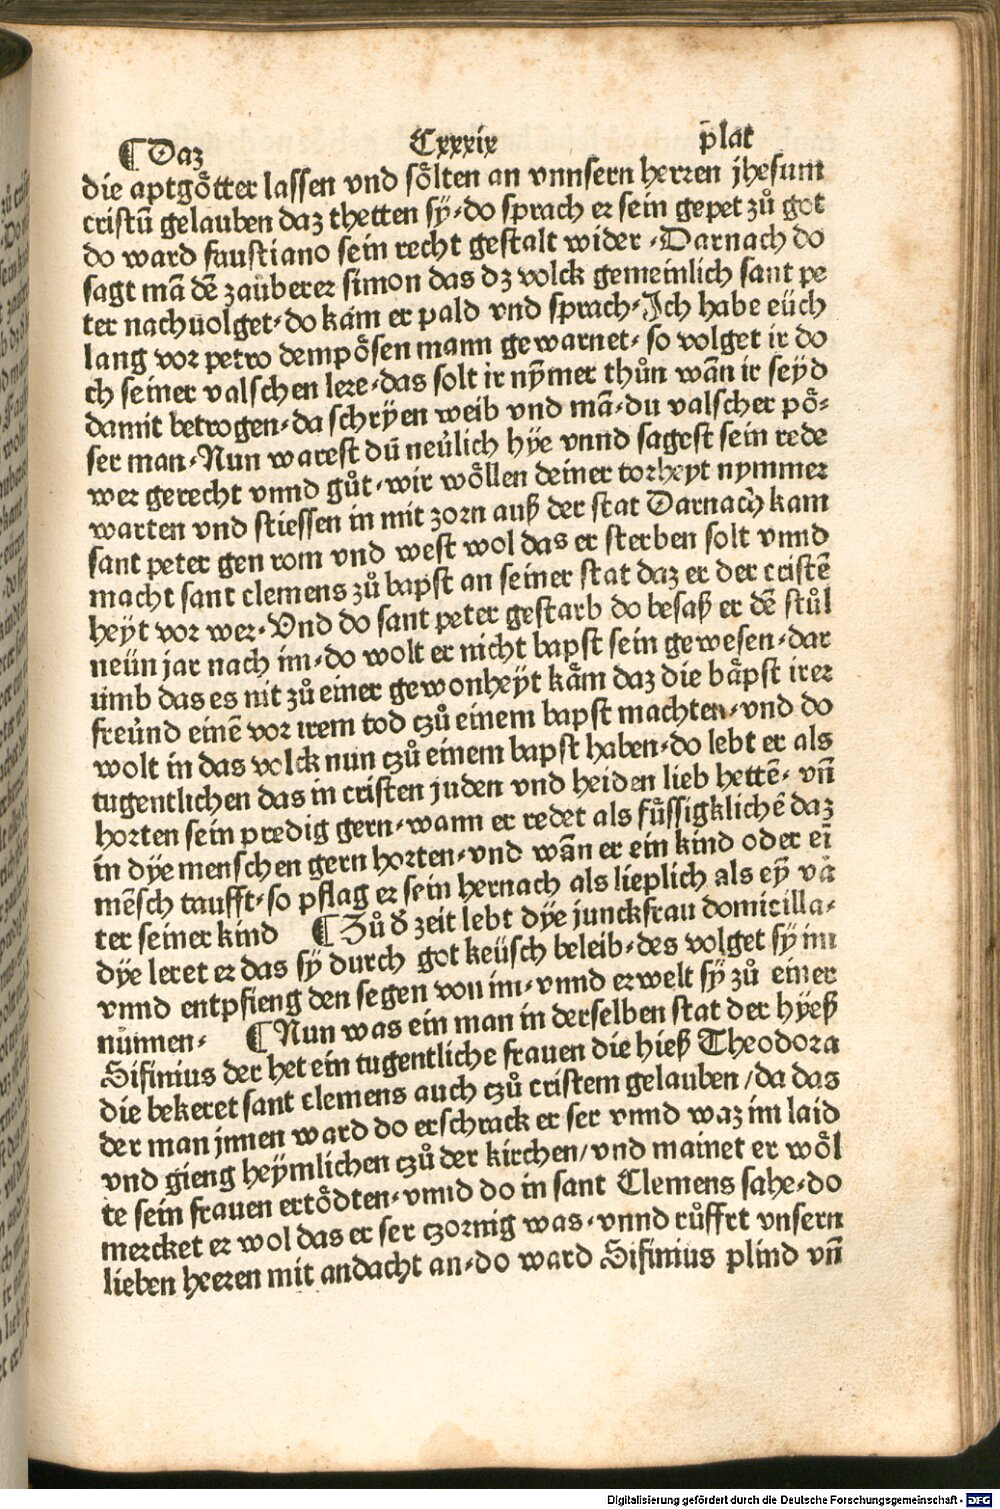 ¶ Daz Cxxxix plat
die aptgötter lassen vnd sölten an vnnsern herren jhesum
cristū gelauben daz thetten sÿ·do sprach er sein gepet zů got
do ward faustiano sein recht gestalt wider·Darnach do
sagt mā dē zaůberer simon das dz volck gemeinlich sant pe
ter nachuolget·do kam er pald vnd sprach·Ich habe eüch
lang vor petro dem pösen mann gewarnet·so volget ir do
ch seiner valschen lere·das solt ir nÿmer thůn wān ir seÿd
damit betrogen·da schrÿen weib vnd mā·du valscher pö⸗
ser man·Nun warest dū neůlich hÿe vnnd sagest sein rede
wer gerecht vnnd gůt·wir wöllen deiner torheyt nymmer
warten vnd stiessen in mit zorn auß der stat Darnach kam
sant peter gen rom vnd west wol das er sterben solt vnnd
macht sant clemens zů bapst an seiner stat daz er der cristē
heÿt vor wer·Vnd do sant peter gestarb do besaß er dē stůl
neün jar nach im·do wolt er nicht bapst sein gewesen·dar
umb das es nit zů einer gewonheÿt käm daz die bäpst irer
freůnd einē vor irem tod czů einem bapst machten·vnd do
wolt in das volck nun czů einem bapst haben·do lebt er als
tugentlichen das in cristen juden vnd heiden lieb hettē·vñ
horten sein predig gern·wann er redet als fůssigklichē daz
in dÿe menschen gern horten·vnd wān er ein kind oder eī
mēsch taufft·so pflag er sein hernach als lieplich als eÿ va
ter seiner kind ¶ Zů đ zeit lebt dÿe junckfrau domicilla·
dÿe leret er das sÿ durch got keüsch beleib·des volget sÿ im
vnnd entpfieng den segen von im·vnnd erwelt sÿ zů einer
nünnen· ¶ Nun was ein man in derselben stat der hÿeß
Sifinius der het ein tugentliche frauen die hieß Theodora
die bekeret sant clemens auch czů cristem gelauben/da das
der man jnnen ward do erschrack er ser vnnd waz im laid
vnd gieng heÿmlichen czů der kirchen/vnd mainet er wöl
te sein frauen ertödten·vnnd do in sant Clemens sahe·do
mercket er wol das er ser czornig was·vnnd růffrt vnsern
lieben heeren mit andacht an·do ward Sifinius plind vñ
Digitalisierung gefördert durch die Deutsche Forschungsgemeinschaft - DFG